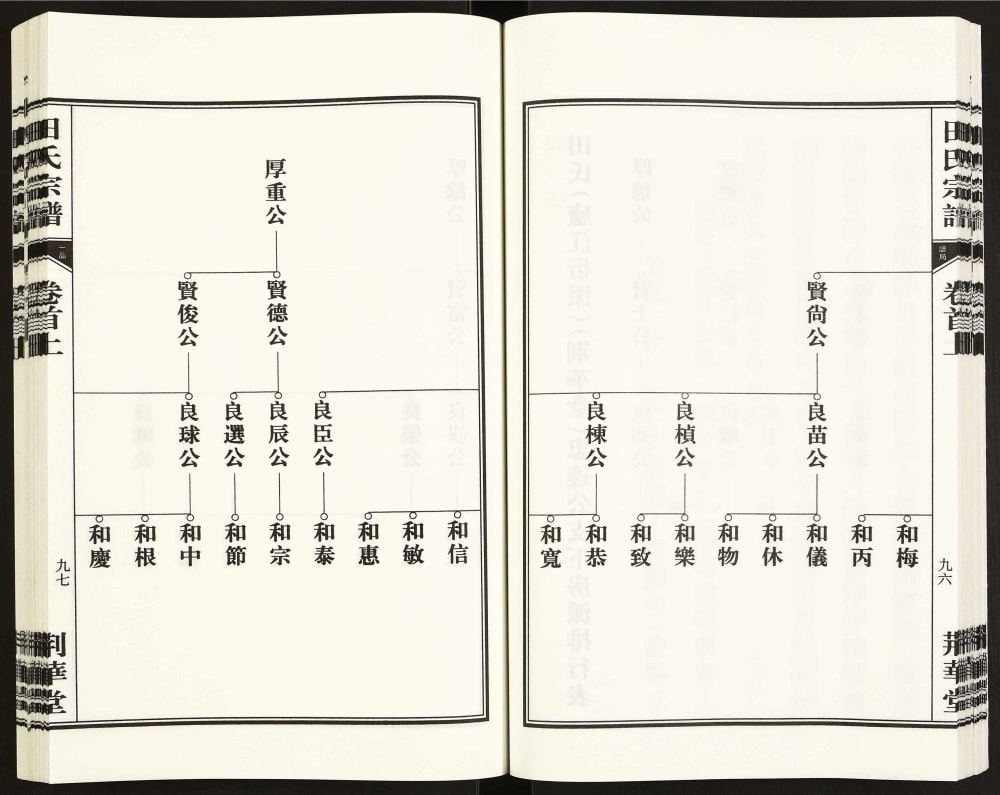 田氏宗譜
譜局
卷首上
九六
荆華堂
賢尙公
良苗公
良楨公
良棟公
和梅
和丙
和儀
和休
和物
和樂
和致
和恭
和寬
厚重公
賢德公
賢俊公
良臣公
良辰公
良選公
良球公
和信
和敏
和惠
和泰
和宗
和節
和中
和根
和慶
田氏宗譜
一品
卷首上
九七
荆華堂